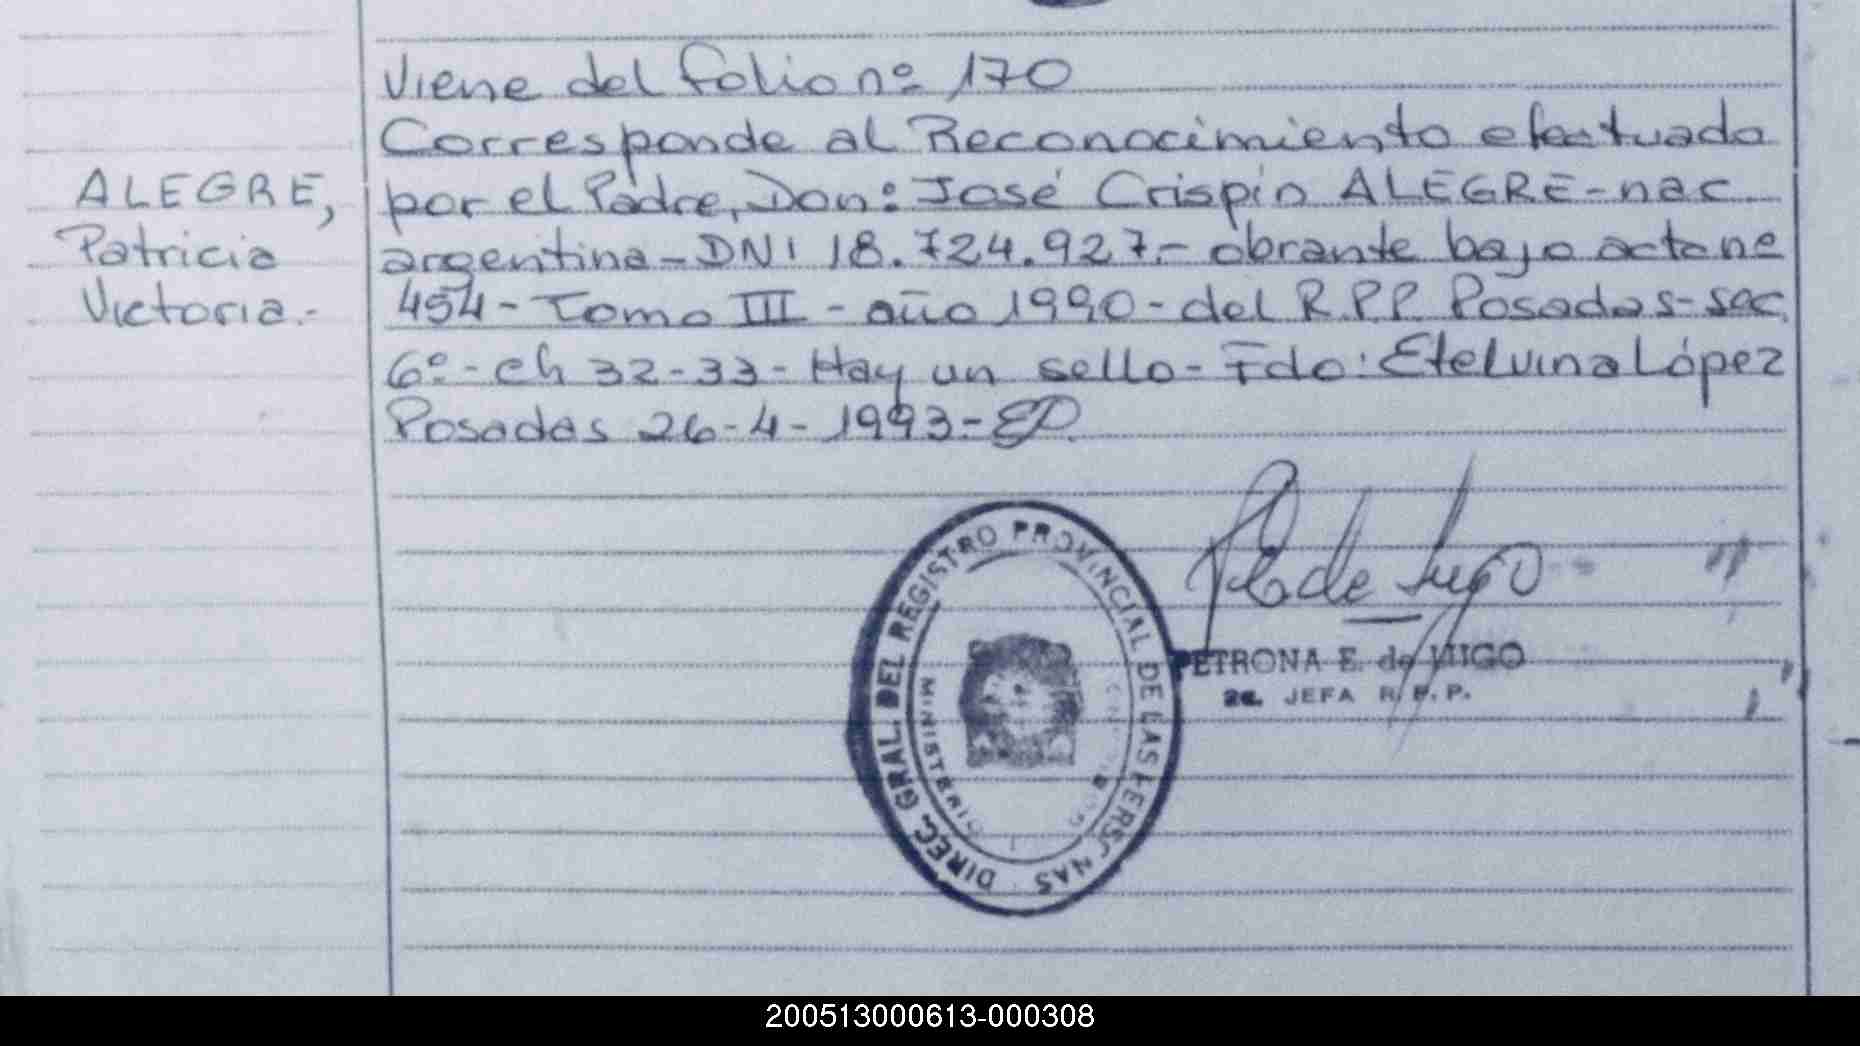 Viene del folio nº 170
Corresponde al Reconocimiento efectuado
por el Padre, Don: José Crispín ALEGRE-nac
argentina-DNI 18.724.927.- obrante bajo acta nº
454- Tomo III - año 1990-del R.P.P. Posadas-sec.
6º- ch 32-33- Hay un sello- Fdo: Etelvina López
Posadas 26-4-1993-EP.
ALEGRE,
Patricia
Victoria.-
DIREC. GRAL. DEL REGISTRO PROVINCIAL DE LAS PERSONAS
MINISTERIO
P. de Lugo
PETRONA E. de LUGO
2a. JEFA R.P.P.
200513000613-000308